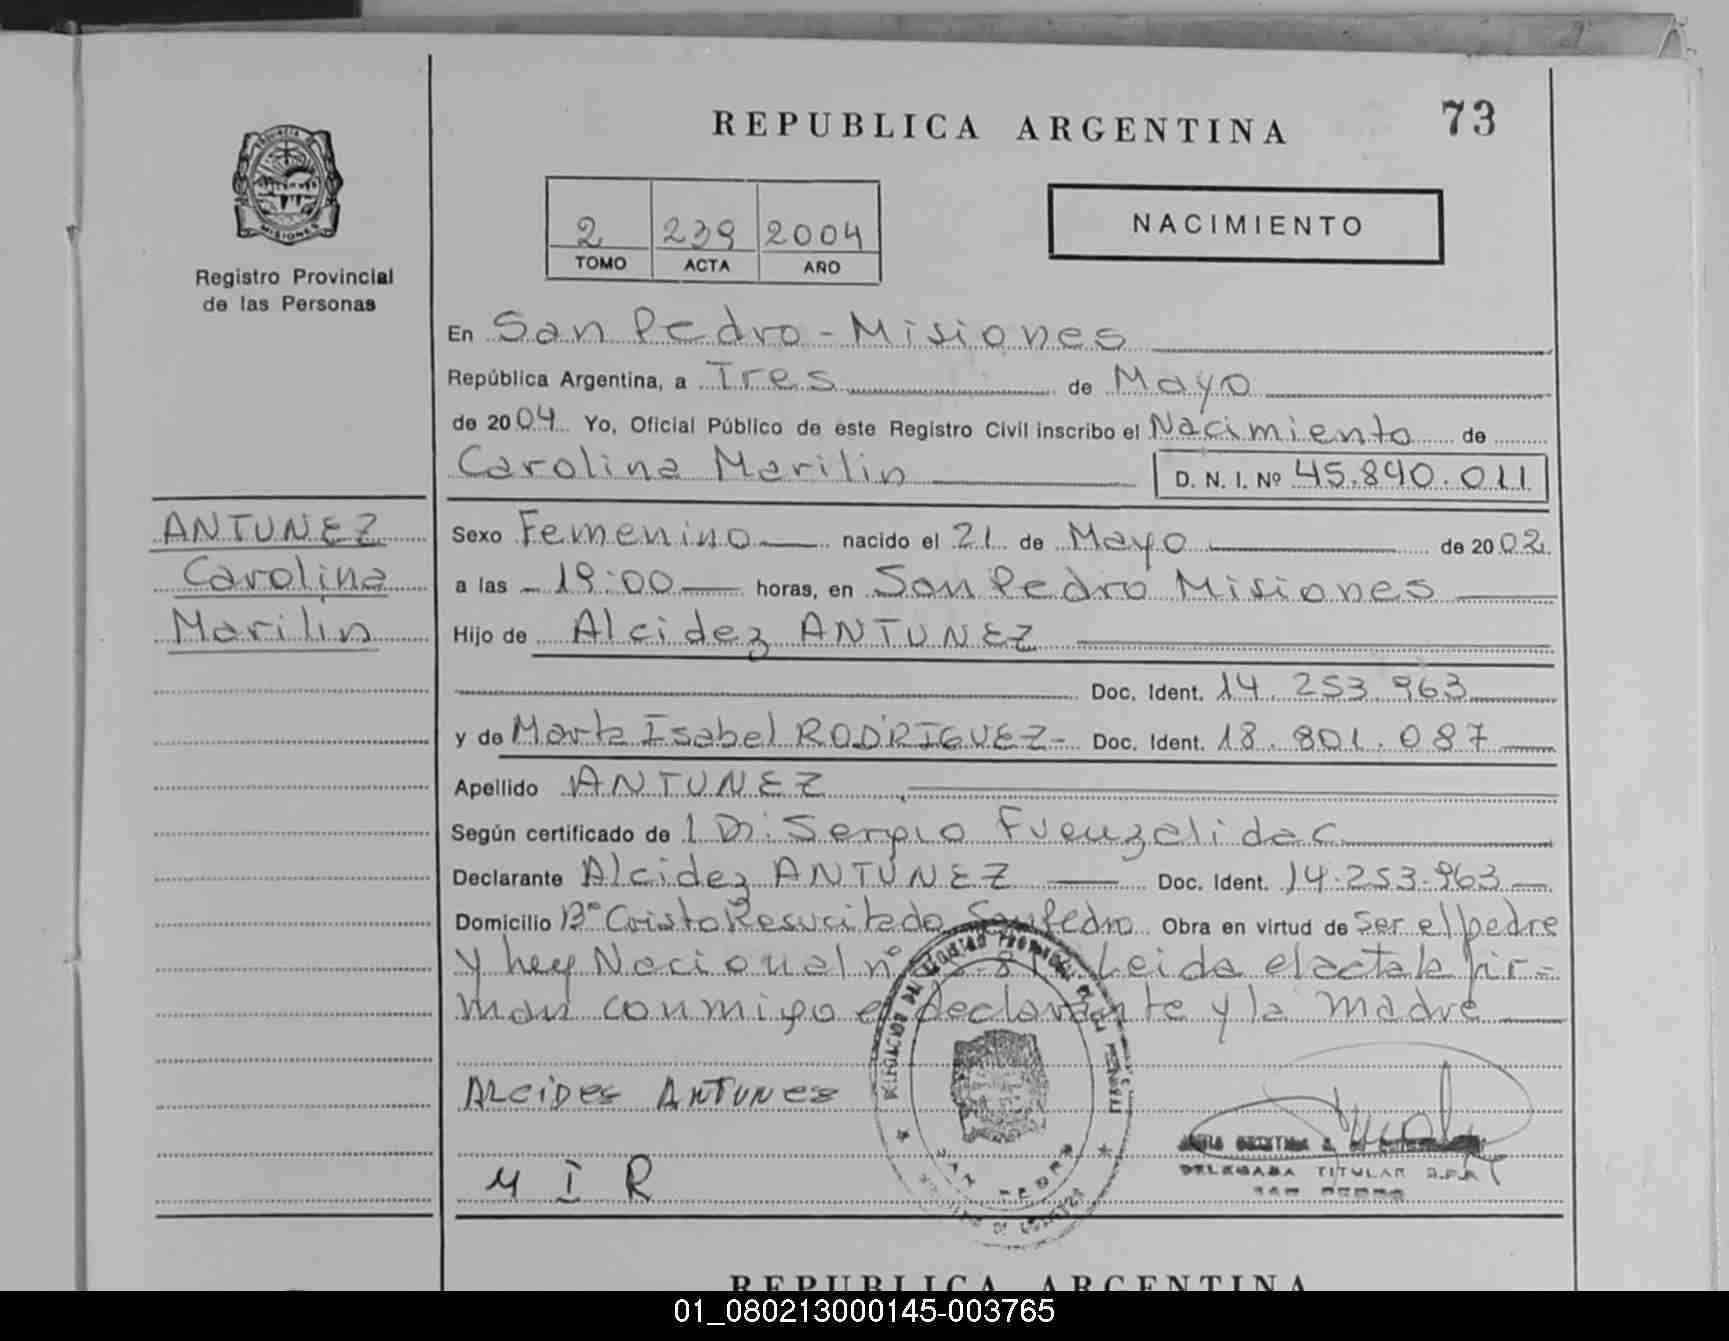 REPUBLICA ARGENTINA
73
PROVINCIA DE
MISIONES
Registro Provincial
de las Personas
2 239 2004
TOMO ACTA AÑO
NACIMIENTO
En San Pedro - Misiones
República Argentina, a Tres de Mayo
de 2004 Yo, Oficial Público de este Registro Civil inscribo el Nacimiento de
Carolina Marilin D. N. I. Nº 45.840.011
ANTUNEZ
Carolina
Marilin
Sexo Femenino nacido el 21 de Mayo de 2002
a las 19:00 horas, en San Pedro Misiones
Hijo de Alcidez ANTUNEZ
Doc. Ident. 14.253.963
y de Marta Isabel RODRIGUEZ - Doc. Ident. 18.801.087
Apellido ANTUNEZ
Según certificado de Dr. Sergio Fuenzalida C.
Declarante Alcidez ANTUNEZ Doc. Ident. 14.253.963
Domicilio Bº Cristo Resucitado San Pedro Obra en virtud de ser el padre
y ley Nacional nº Leida el acta la fir=
man conmigo el declarante y la madre
ALCIDES ANTUNES
M I R
DELEGADA TITULAR
SAN PEDRO
SAN PEDRO
REPUBLICA ARGENTINA
01_080213000145-003765